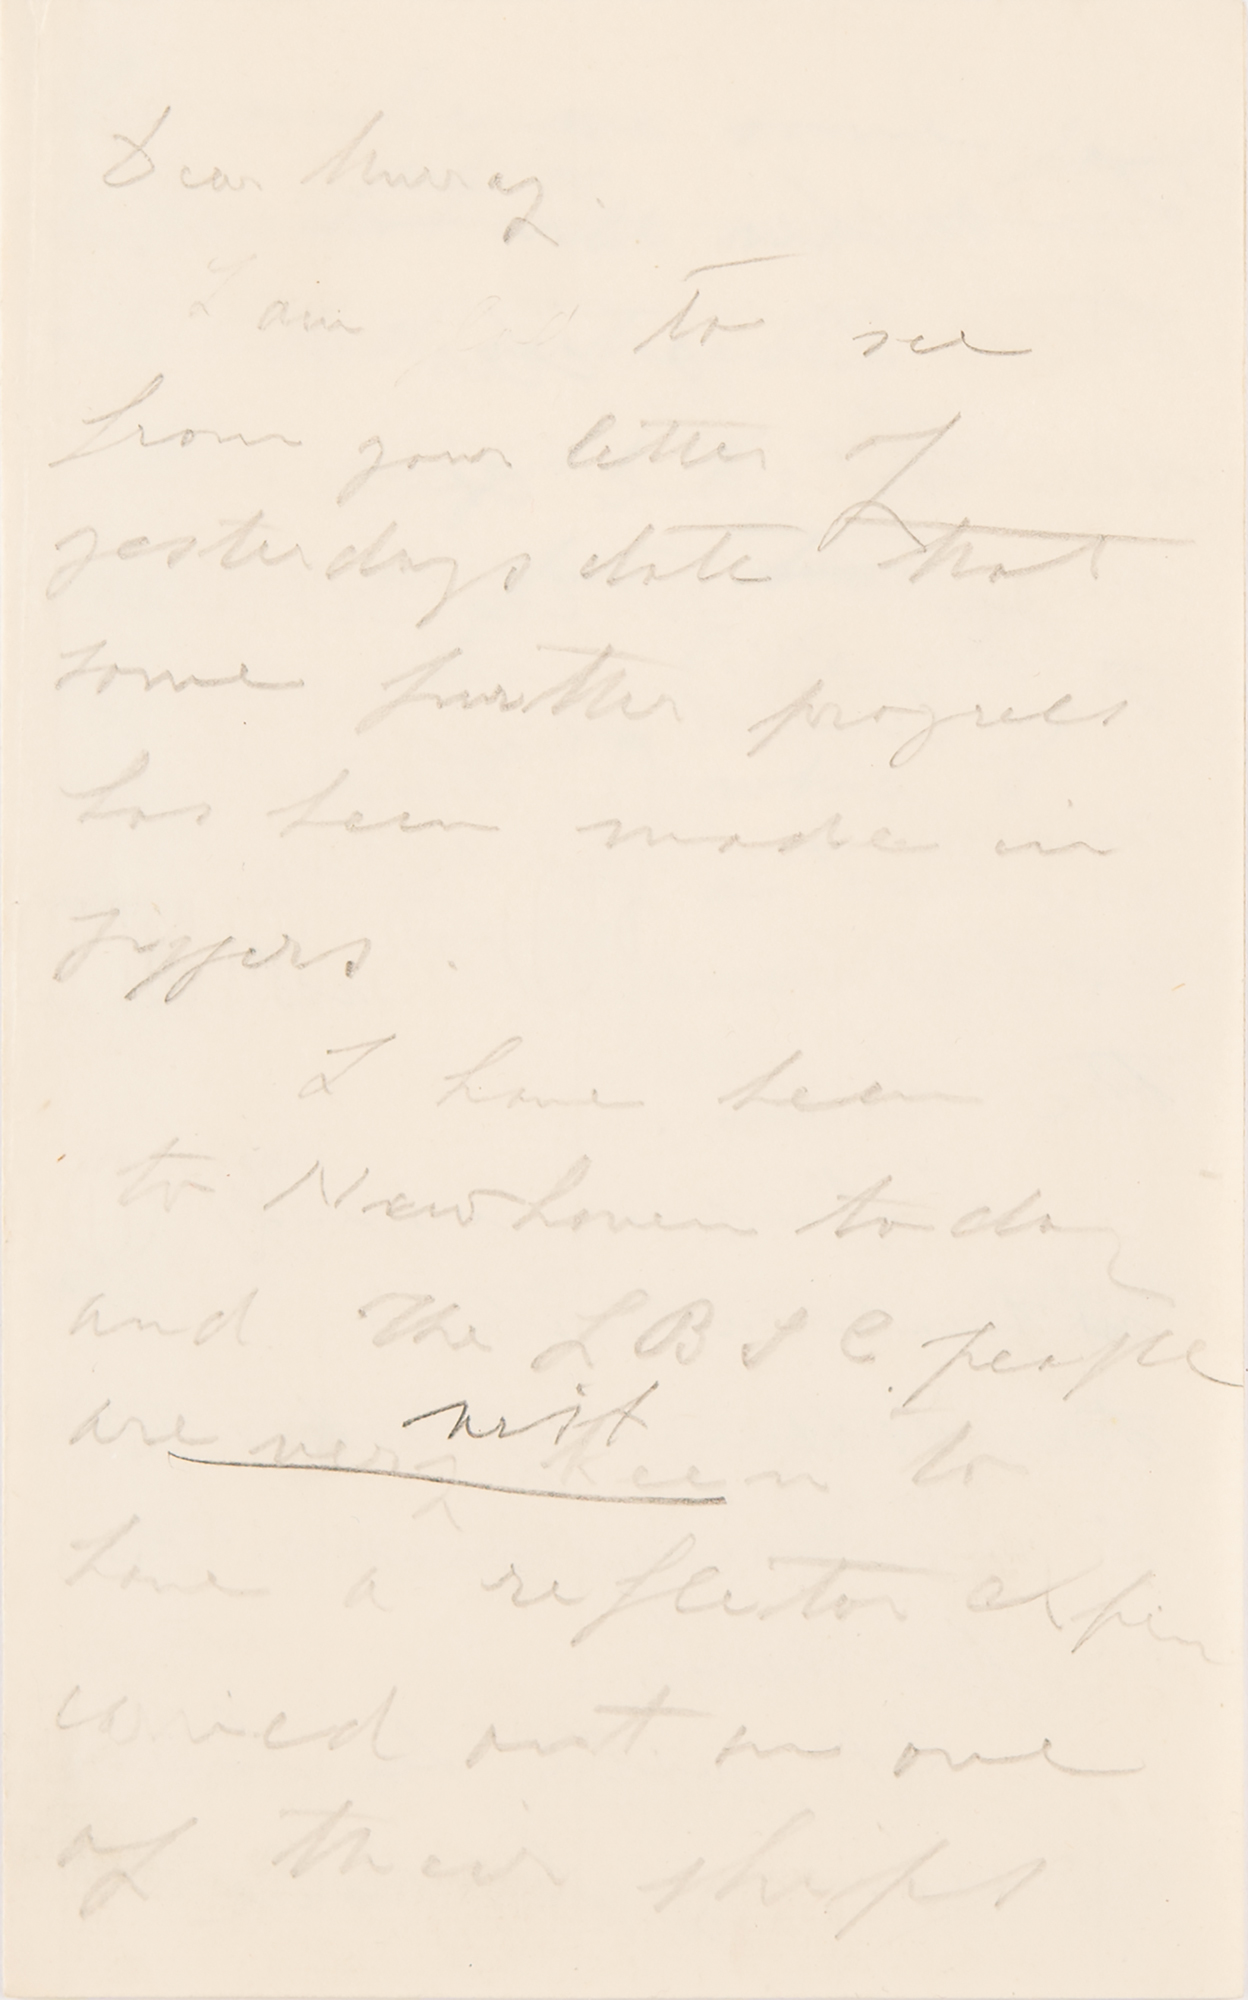 Dear Murray.
I am glad to see
from your letter of
yesterdays date that
some further progress
has been made in
jiggers.
I have been
to Newhaven today
and the L B S C people
are very keen to
have a reflector exper
carried out on one
of their ships